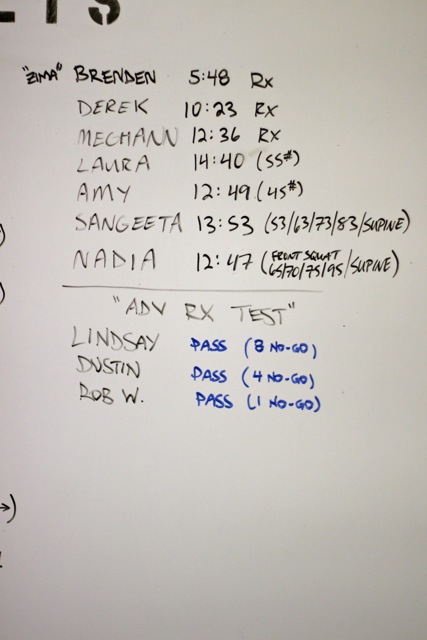 "ZIMA" BRENDEN 5:48 Rx
DEREK 10:23 RX
MEGHANN 12:36 RX
LAURA 14:40 (55#)
AMY 12:49 (45#)
SANGEETA 13:53 (53/63/73/83/SUPINE)
NADIA 12:47 (FRONT SQUAT 65/70/75/95/SUPINE)
"ADV RX TEST"
LINDSAY PASS (8 NO-GO)
DUSTIN PASS (4 NO-GO)
ROB W. PASS (1 NO-GO)